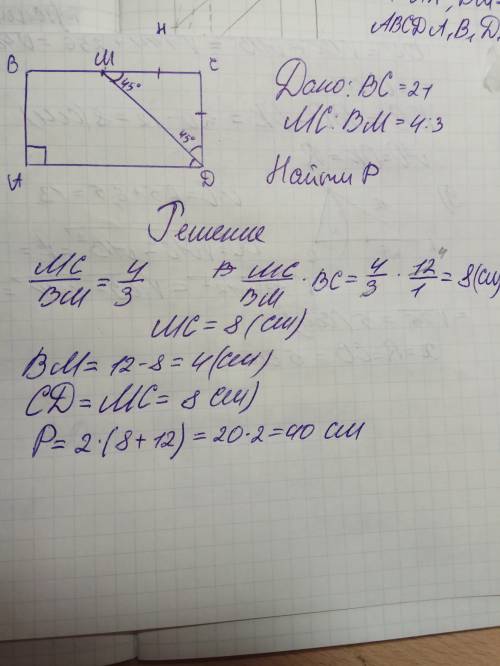 ABCD A₁ B₁ D₁
н
B M C
45°
45°
A D
Дано: BC = 21
MC : BM = 4:3
Найти P
Решение
MC/BM = 4/3 MC/BM · BC = 4/3 · 12/1 = 8 (см)
MC = 8 (см)
BM = 12 - 8 = 4 (см)
CD = MC = 8 см)
P = 2 · (8 + 12) = 20 · 2 = 40 см